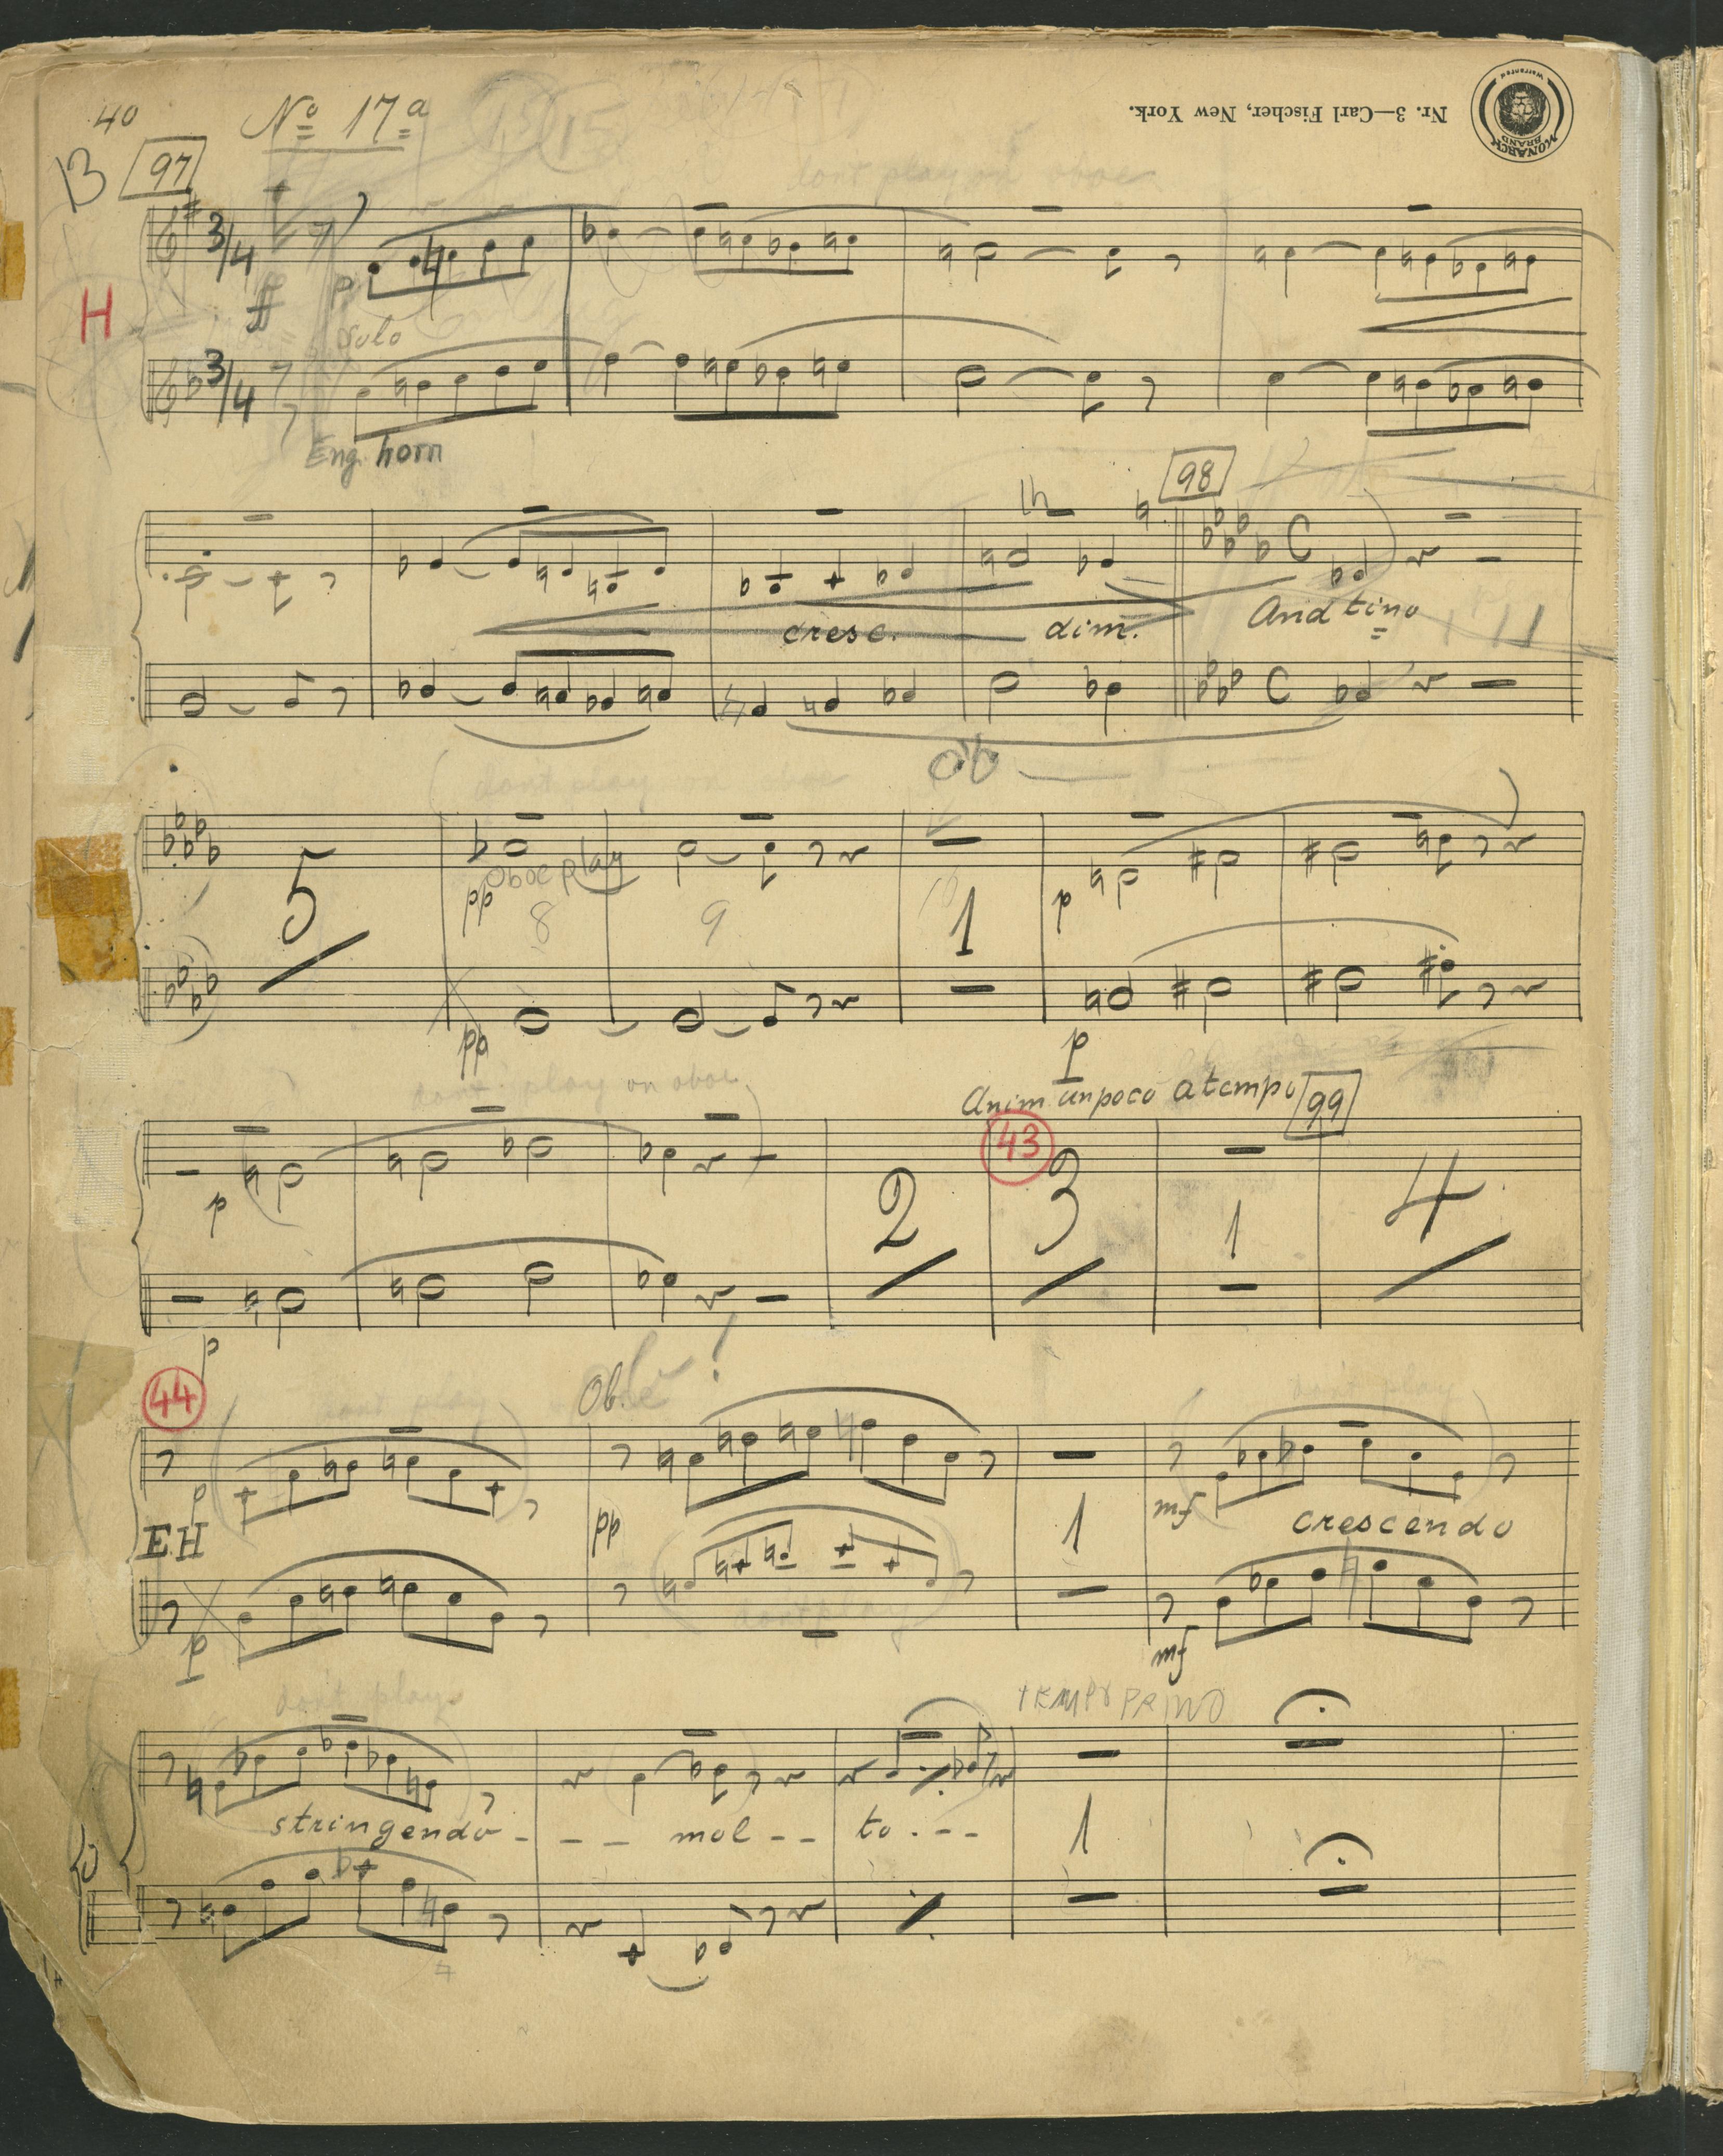 40
Nº 17ª
Nr. 3—Carl Fischer, New York.
Warranted
MONARCH
BRAND
B 97
15 15
dont play on oboe
H
3/4
ff p
Solo
3/4
Eng. horn
98
cresc. dim. Andtino
C
C
Ob
dont play on oboe
5
pp oboe play
8 9 10
1
p
pp
p
dont play on oboe
Anim un poco a tempo 99
43
p
2 3 1 4
p
44
dont play
Ob.
dont play
p
pp
1
mf
crescendo
EH
p
dont p
mf
dont play
TEMPO PRIMO
stringendo - - - - mol - - to - - -
1